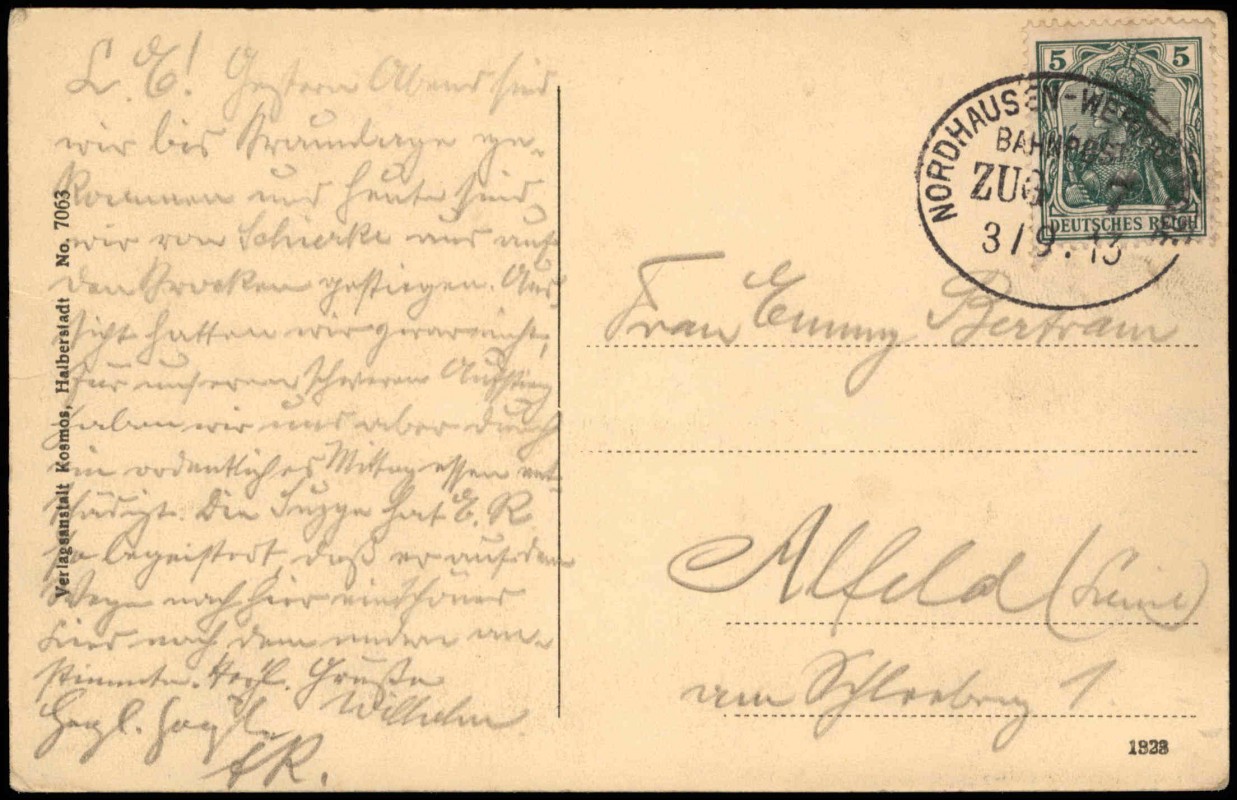 L. E! Gestern Abend sind
wir bis Braunlage ge-
kommen und heute sind
wir von Schierke aus auf
den Brocken gestiegen. Aus-
sicht hatten wir zwar nicht,
für unseren schweren Aufstieg
haben wir uns aber durch
ein ordentliches Mittagessen ent-
schädigt. Die Suppe hat E. R.
so begeistert, daß er auf dem
Wege nach hier ein schönes
Lied nach dem andern an-
stimmte. Herzl. Grüße
Wilhelm
ER.
Verlagsanstalt Kosmos, Halberstadt No. 7063
5 5
DEUTSCHES REICH
NORDHAUSEN-WER
BAHNPOST
ZUG 7
3/9.13
Frau Emmy Bertram
Alfeld (Leine)
am Schleeberg 1.
1328